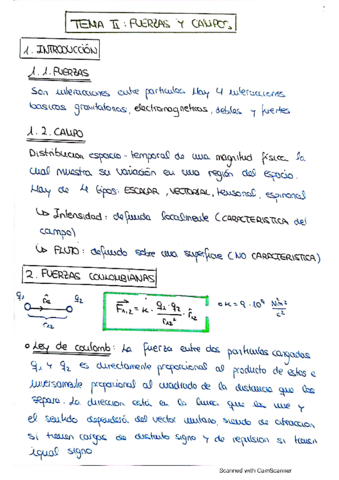 TEMA II: FUERZAS Y CAMPOS.
1. INTRODUCCIÓN
1.1. FUERZAS
Son interacciones entre partículas. Hay 4 interacciones
basicas gravitatorias, electromagneticas, debiles y fuertes
1.2. CAMPO
Distribucion espacio-temporal de una magnitud física la
cual muestra su variación en una región del espacio.
Hay de 4 tipos: ESCALAR, VECTORIAL, tensorial, espinorial
↳ Intensidad: definida localmente (CARACTERISTICA del
campo)
↳ FLUJO: definido sobre una superficie (NO CARACTERISTICA)
2. FUERZAS COULOMBIANAS
q₁ r̂₁₂ q₂
r₁₂
F₁,₂ = K · q₁ · q₂ / r₁₂² · r̂₁₂
K = 9 · 10⁹ N m² / C²
Ley de coulomb: La fuerza entre dos particulas cargadas
q₁ y q₂ es directamente proporcional al producto de estas e
inversamente proporcional al cuadrado de la distancia que las
separa. La direccion está en la linea que las une y
el sentido dependerá del vector unitario, siendo de atraccion
si tienen cargas de distinto signo y de repulsion si tienen
igual signo
Scanned with CamScanner